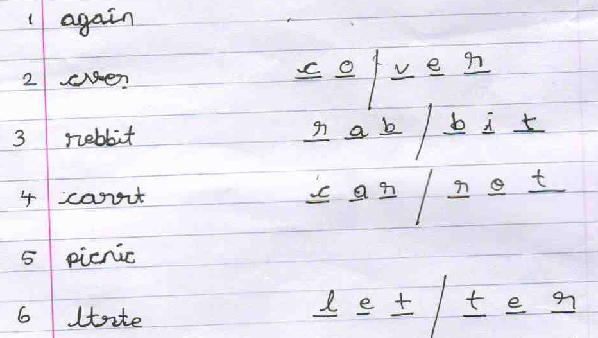 1 again
2 cver co/ver
3 rebbit rab/bit
4 carrt car/rot
5 picnic
6 ltrte let/ter